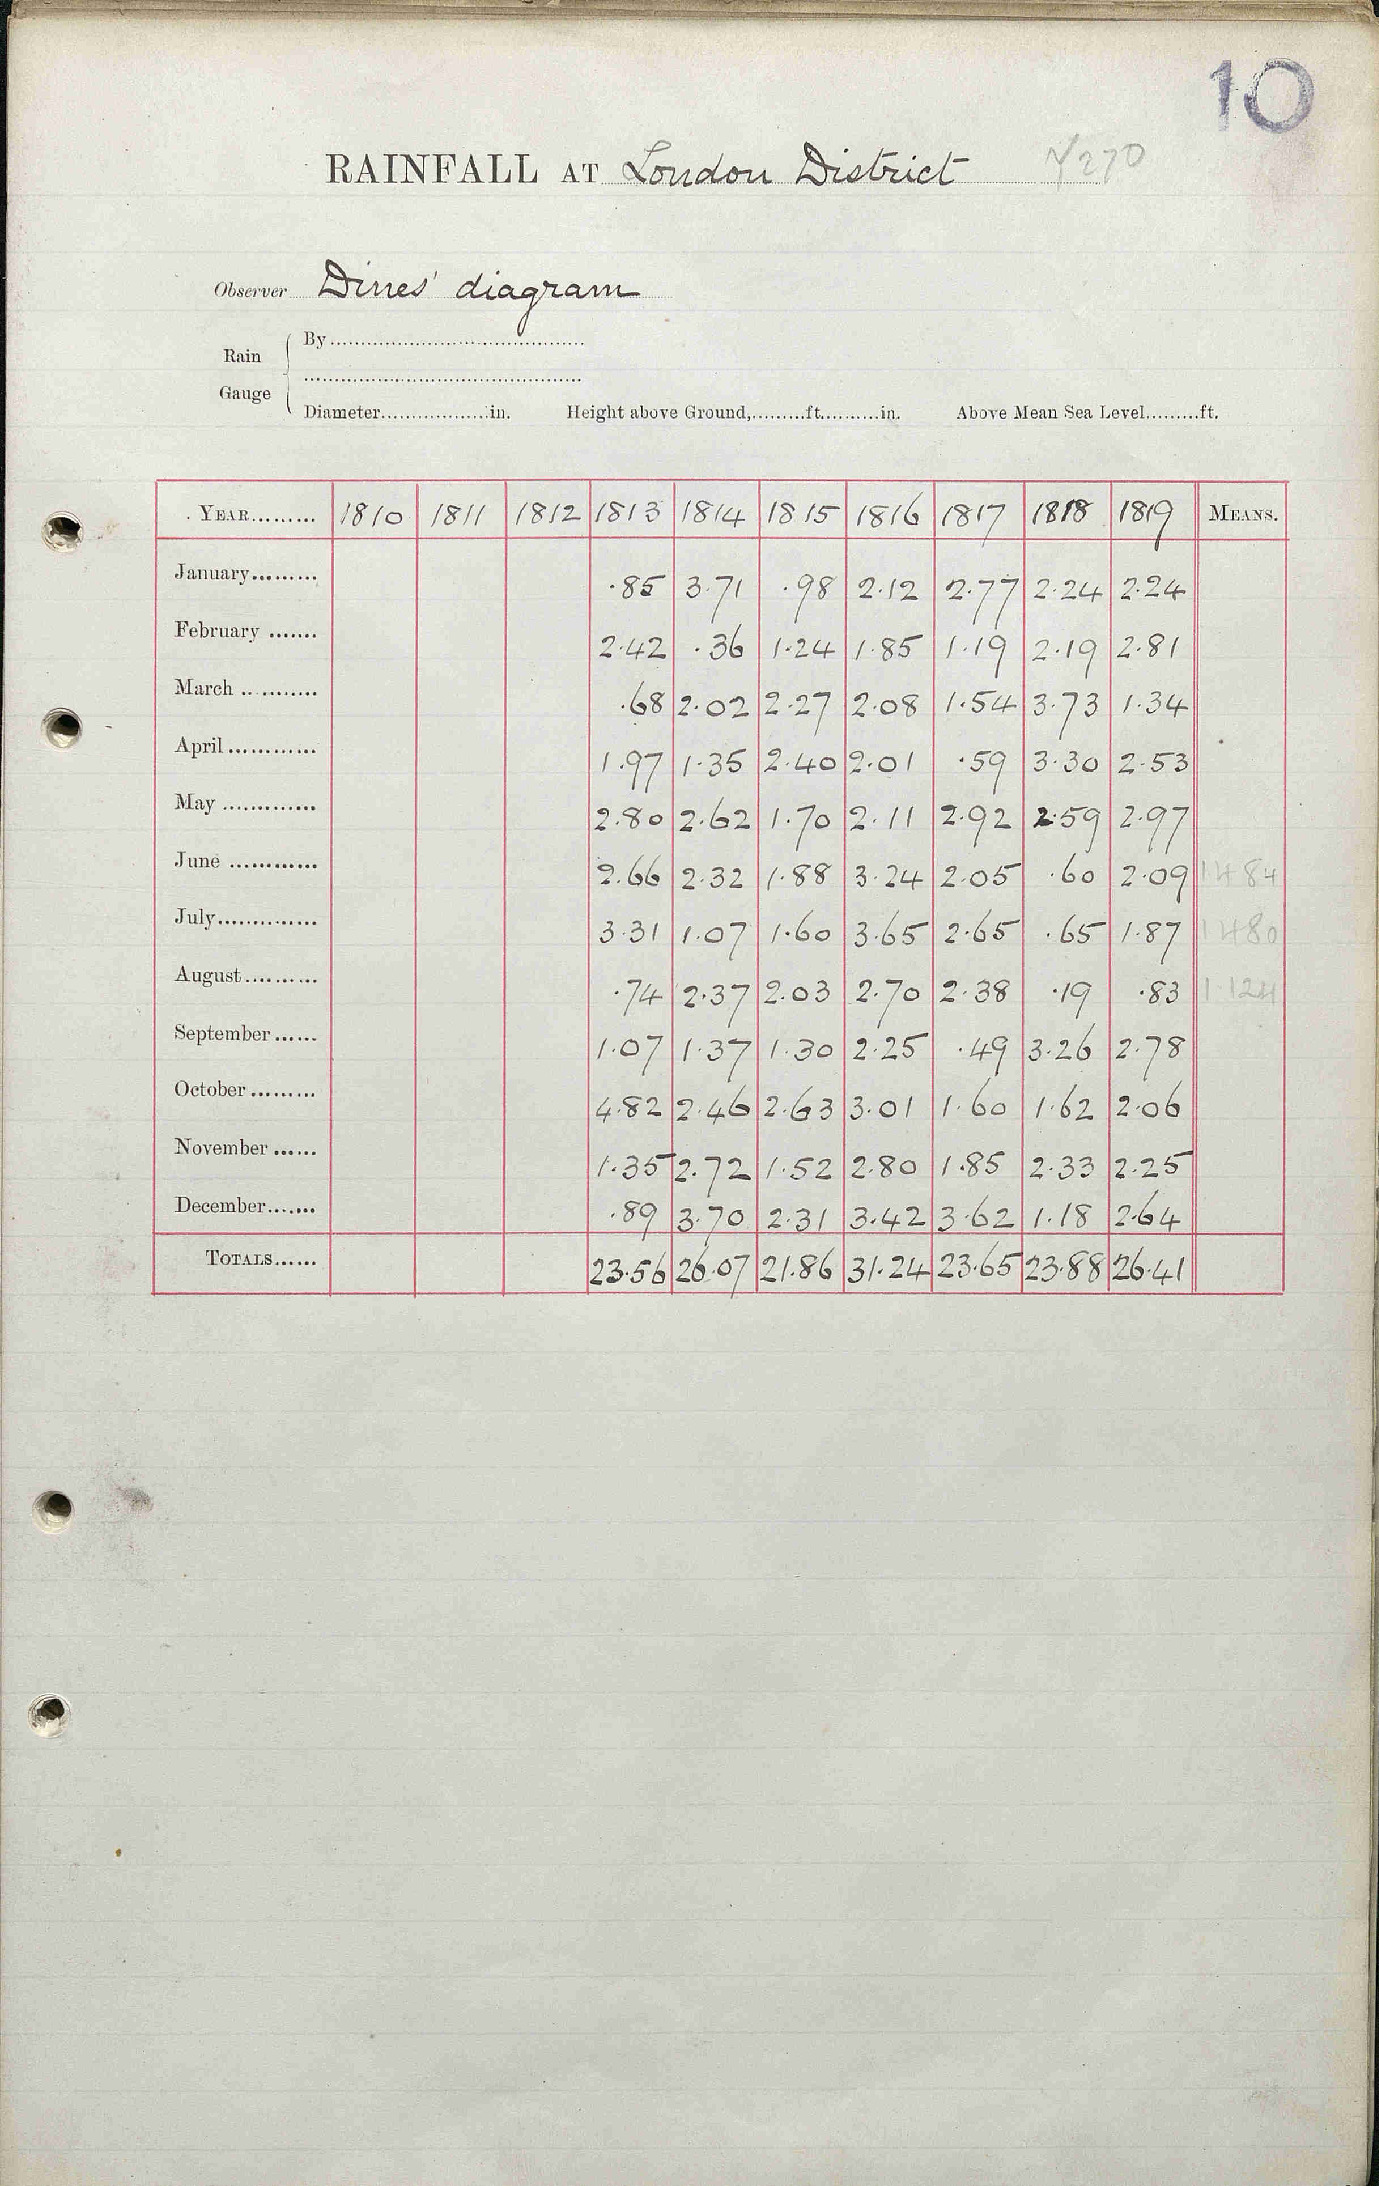 10
RAINFALL AT London District
Observer Dines' diagram
Rain Gauge
By
Diameter in. Height above Ground, ft. in. Above Mean Sea Level ft.
YEAR 1810 1811 1812 1813 1814 1815 1816 1817 1818 1819 MEANS.
January .85 3.71 .98 2.12 2.77 2.24 2.24
February 2.42 .36 1.24 1.85 1.19 2.19 2.81
March .68 2.02 2.27 2.08 1.54 3.73 1.34
April 1.97 1.35 2.40 2.01 .59 3.30 2.53
May 2.80 2.62 1.70 2.11 2.92 2.59 2.97
June 2.66 2.32 1.88 3.24 2.05 .60 2.09 1484
July 3.31 1.07 1.60 3.65 2.65 .65 1.87 1480
August .74 2.37 2.03 2.70 2.38 .19 .83 1.124
September 1.07 1.37 1.30 2.25 .49 3.26 2.78
October 4.82 2.46 2.63 3.01 1.60 1.62 2.06
November 1.35 2.72 1.52 2.80 1.85 2.33 2.25
December .89 3.70 2.31 3.42 3.62 1.18 2.64
TOTALS 23.56 26.07 21.86 31.24 23.65 23.88 26.41